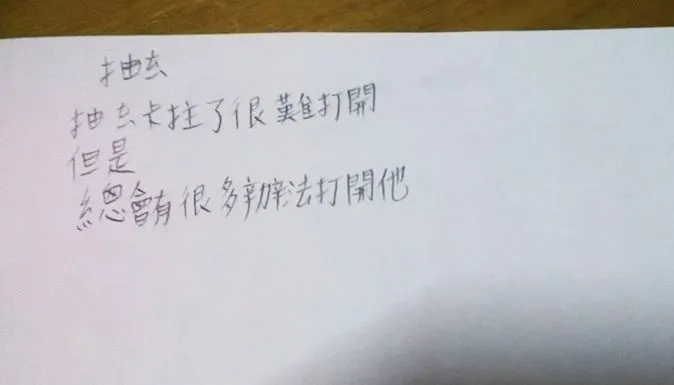 抽去
抽去卡拄了很難打開
但是
總會有很多辦法打開他